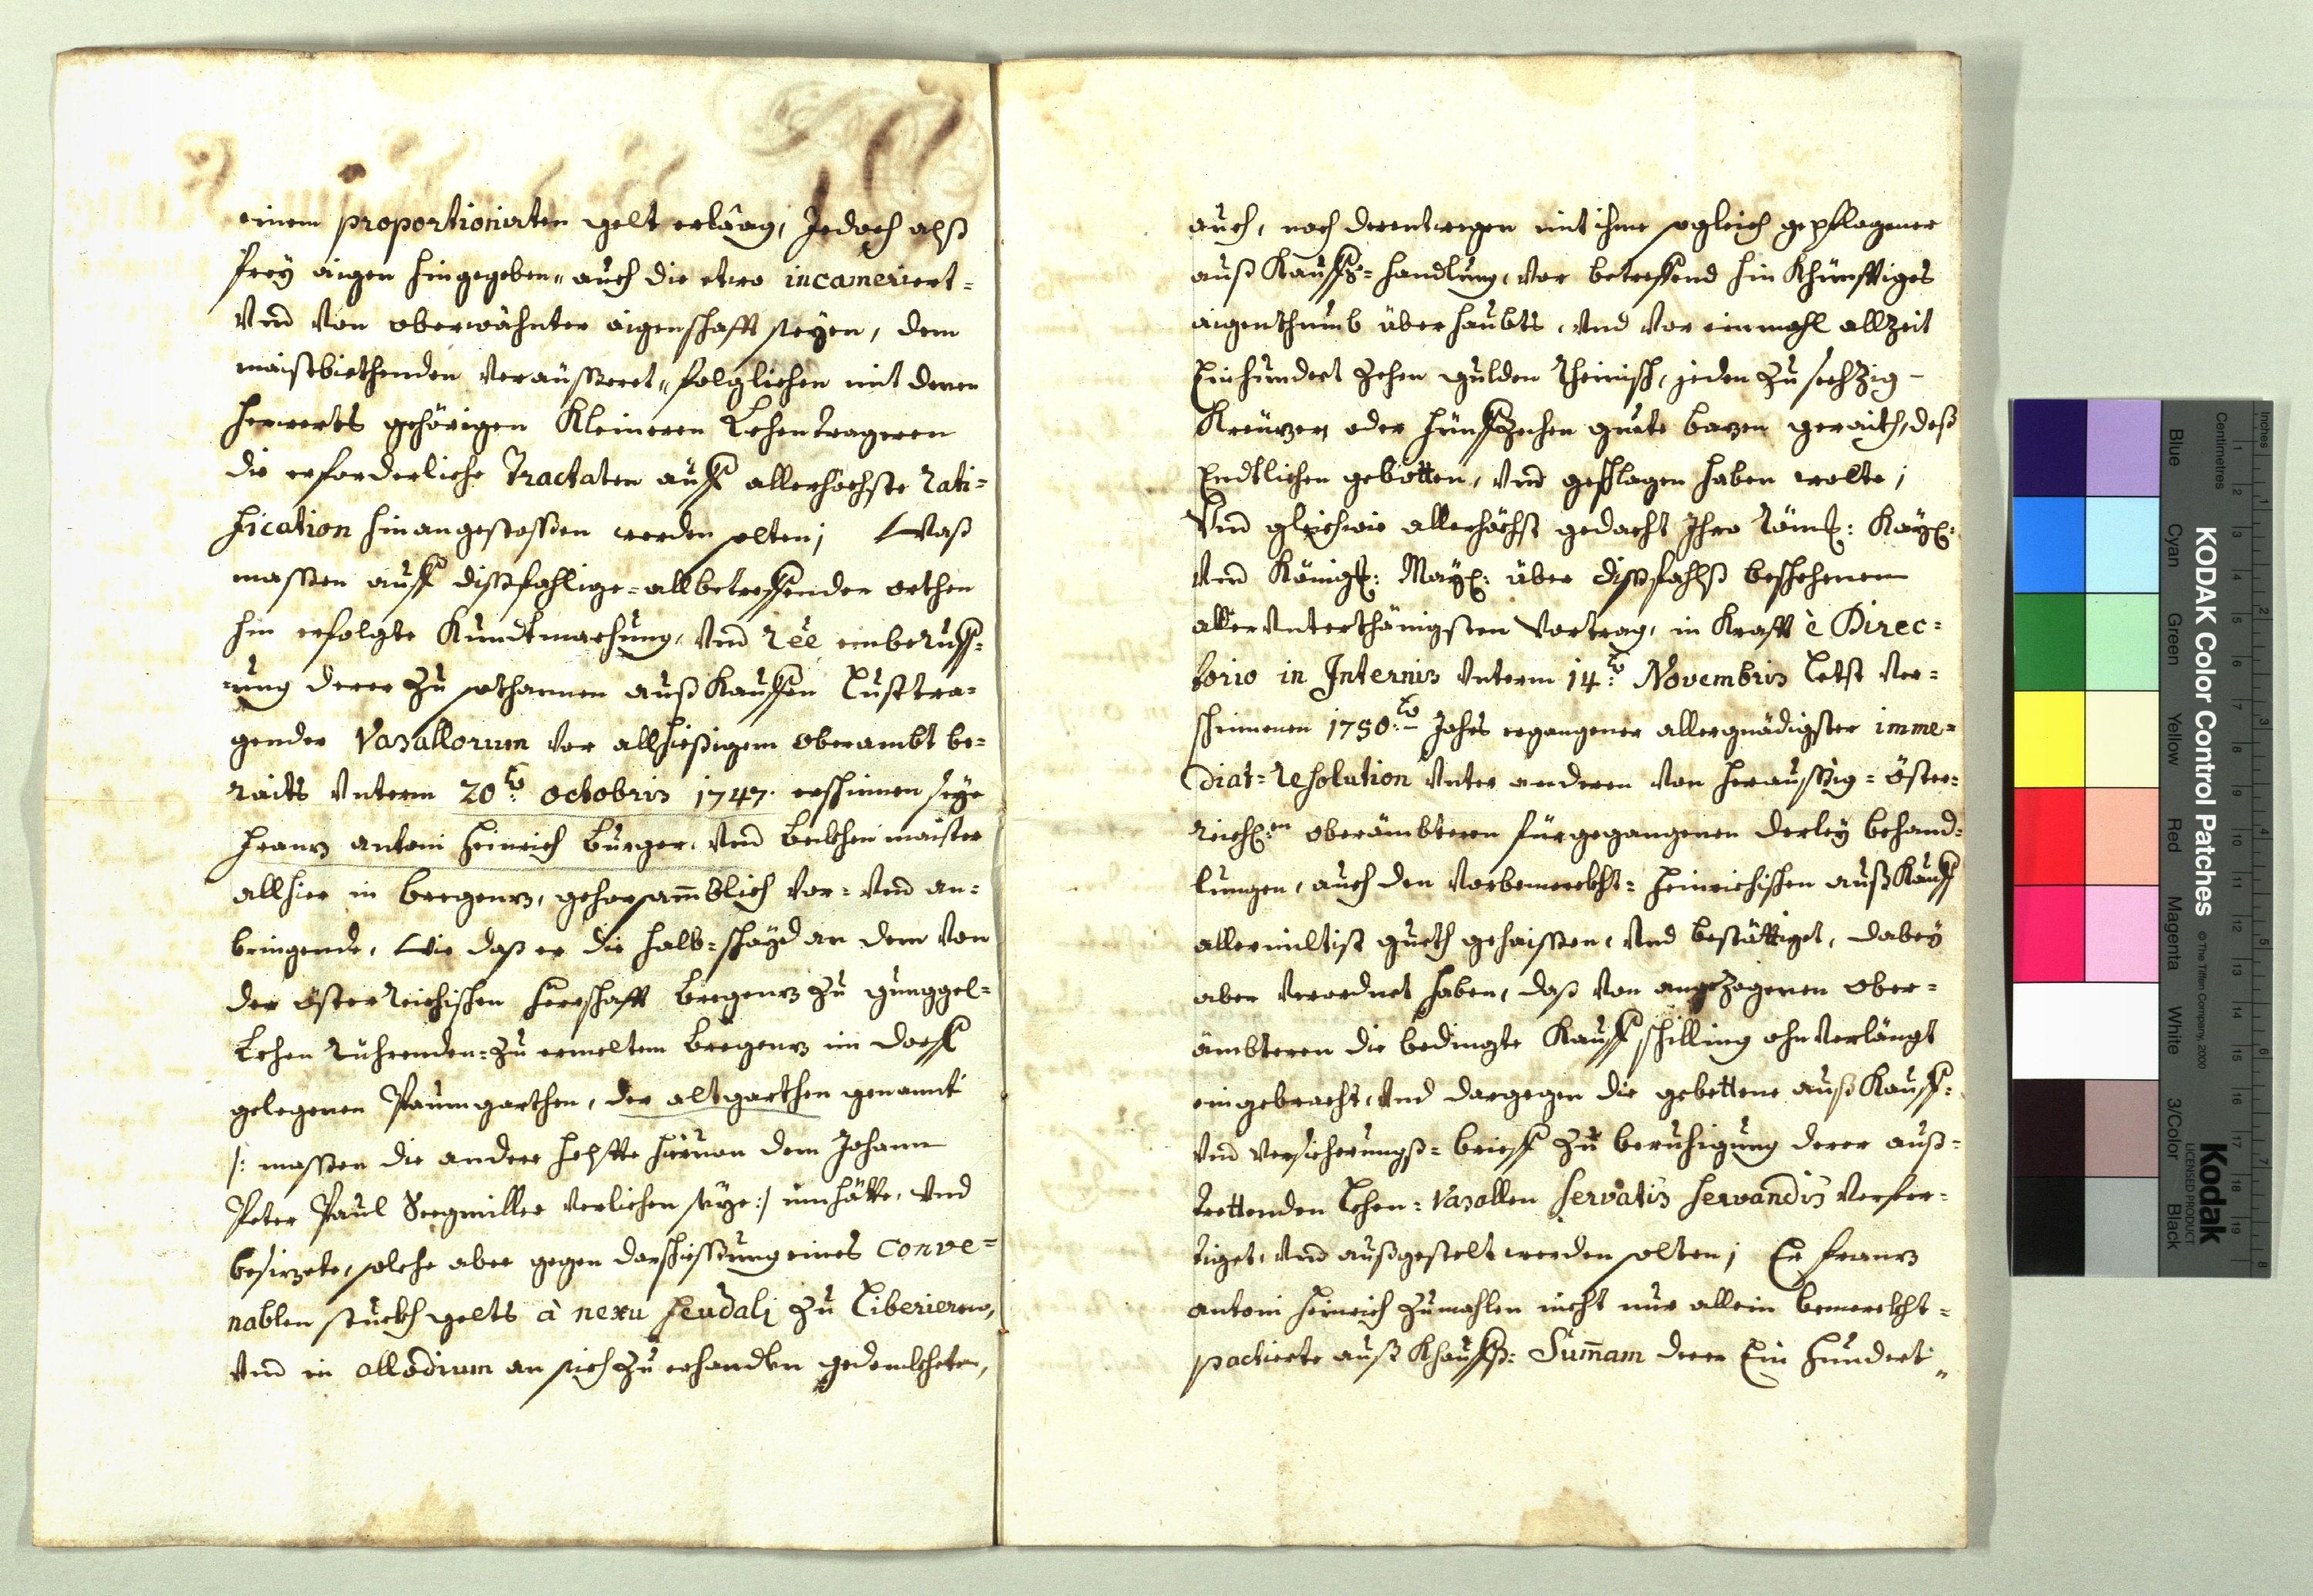 einem proportionirten gelt erlaag, Jedoch alß
freÿ aigen hingegeben, auch die etwo incameriert=
Vnd Von oberwähnter aigenschafft seÿen, dem
maistbiethenden Veräusseret, folglichen mit denen
herwerts gehörigen Kleineren Lehentrageren
die erforderliche Tractaten auff allerhöchste rati=
fication hinangestossen werden solten; Waß
massen auff dißfahlige=allbetreffenden orthen
hin erfolgte Kundtmachung, Vnd rèe einberuff=
=ung derer Zu sothannen außkauffen Lusttra=
gender Vasallorum Vor allhießigem oberambt be=
raits Vnterm 20.to octobris 1747. erschinnen seÿe
Franz antoni Heinrich burger, Vnd beckhen maister
allhier in bregenz, gehorsammblich Vor= Vnd an=
bringende, Wie daß er die halb=schayd an dem Von
der österreichischen herrschafft bregenz Zu gunggel=
Lehen rührenden=Zu ermeltem bregenz im dorff
gelegenen Paumgarthen, der altgarthen genannt
/: massen die andere helffte hiervon dem Johann
Peter Paul Seegmiller Verlichen seÿe :/ innhätte, Vnd
besitzete, solche aber gegen darschiessung eines conve=
nablen stuckh gelts à nexu feudalj Zu Liberieren,
Vnd in allodium an sich Zu erhandlen gedenckhete,
auch, nach derentwegen mit ihme sogleich gepflogener
außkauffs=handlung, Vor betreffend hin Khünfftiges
aigenthumb überhaubts, Vnd Vor einmahl allzeit
Einhundert Zehen gulden Rheinisch, jeden Zu sechzig=
Kreuzer, oder fünffzehen guete bazen geraith, deß
Endtlichen gebotten, Vnd geschlagen haben wolte;
Vnd gleichwie allerhöchst gedacht Ihro röml: Kayl:
Vnd Königl: Mayl: über dißfahlß beschehenem
allerVnterthänigsten Vortrag, in Krafft è Direc=
torio in Internis Vnterm 14.to Novembris Letst Ver=
schinnenen 1750.to Jahrs ergangener allergnädigster imme=
diat=resolution Vnter anderen Von heraussig=öster=
reichl.en oberämbteren fürgegangenen derleÿ behand=
lungen, auch den Vorbemerckht=Heinrichischen außKauff
allermiltist gueth gehaissen, Vnd bestättiget, dabeÿ
aber Verordnet haben, daß Von angezogenen ober=
ämbteren die bedingte Kauffschilling ohnVerlängt
eingebracht, Vnd dargegen die gebettene außKauff=
Vnd Versicherungß=brieff Zu beruhigung derer auß=
trettenden Lehen=Vasallen servatis servandis Verfer=
tiget, Vnd außgestelt werden solten; Er Franz
antoni Heinrich Zumahlen nicht nur allein bemerckht=
pactierte außKhauffß=Summam derer Ein Hundert